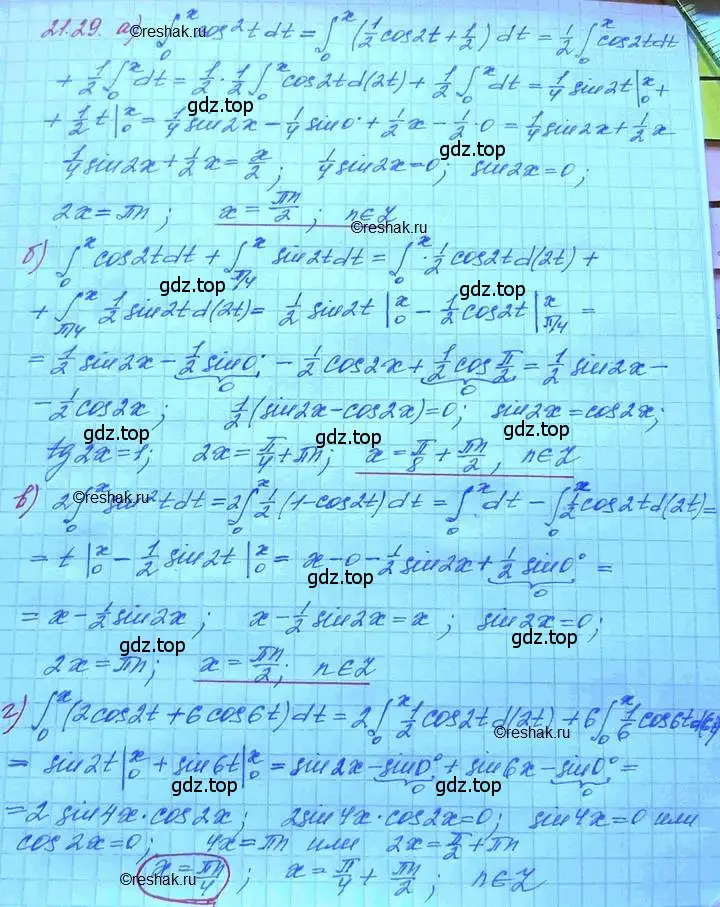 21.29. а) ∫₀ˣ cos²t dt = ∫₀ˣ (1/2 cos2t + 1/2) dt = 1/2 ∫₀ˣ cos2tdt
+ 1/2 ∫₀ˣ dt = 1/2 · 1/2 ∫₀ˣ cos2t d(2t) + 1/2 ∫₀ˣ dt = 1/4 sin2t |₀ˣ +
+ 1/2 t |₀ˣ = 1/4 sin2x − 1/4 sin0 + 1/2 x − 1/2 · 0 = 1/4 sin2x + 1/2 x
1/4 sin2x + 1/2 x = x/2 ; 1/4 sin2x = 0 ; sin2x = 0 ;
2x = πn ; x = πn/2 ; n∈Z
б) ∫₀ˣ cos2tdt + ∫_{π/4}^x sin2tdt = ∫₀ˣ · 1/2 cos2t d(2t) +
+ ∫_{π/4}^x 1/2 sin2t d(2t) = 1/2 sin2t |₀ˣ − 1/2 cos2t |_{π/4}^x =
= 1/2 sin2x − 1/2 sin0° − 1/2 cos2x + 1/2 cos π/2 = 1/2 sin2x −
0 0
− 1/2 cos2x ; 1/2 (sin2x − cos2x) = 0 ; sin2x = cos2x ;
tg2x = 1 ; 2x = π/4 + πn ; x = π/8 + πn/2 , n∈Z
в) 2∫₀ˣ sin²t dt = 2∫₀ˣ 1/2 (1 − cos2t) dt = ∫₀ˣ dt − ∫₀ˣ 1/2 cos2t d(2t) =
= t |₀ˣ − 1/2 sin2t |₀ˣ = x − 0 − 1/2 sin2x + 1/2 sin0° =
0
= x − 1/2 sin2x ; x − 1/2 sin2x = x ; sin2x = 0 ;
2x = πn ; x = πn/2 ; n∈Z
г) ∫₀ˣ (2cos2t + 6cos6t) dt = 2∫₀ˣ 1/2 cos2t d(2t) + 6∫₀ˣ 1/6 cos6t d(6t)
= sin2t |₀ˣ + sin6t |₀ˣ = sin2x − sin0° + sin6x − sin0° =
0 0
= 2 sin4x · cos2x ; 2sin4x · cos2x = 0 ; sin4x = 0 или
cos2x = 0 ; 4x = πn или 2x = π/2 + πn
x = πn/4 ; x = π/4 + πn/2 ; n∈Z
gdz.top
gdz.top
gdz.top
gdz.top
gdz.top
gdz.top
gdz.top
gdz.top
gdz.top
gdz.top
gdz.top
gdz.top
©reshak.ru
©reshak.ru
©reshak.ru
©reshak.ru
©reshak.ru